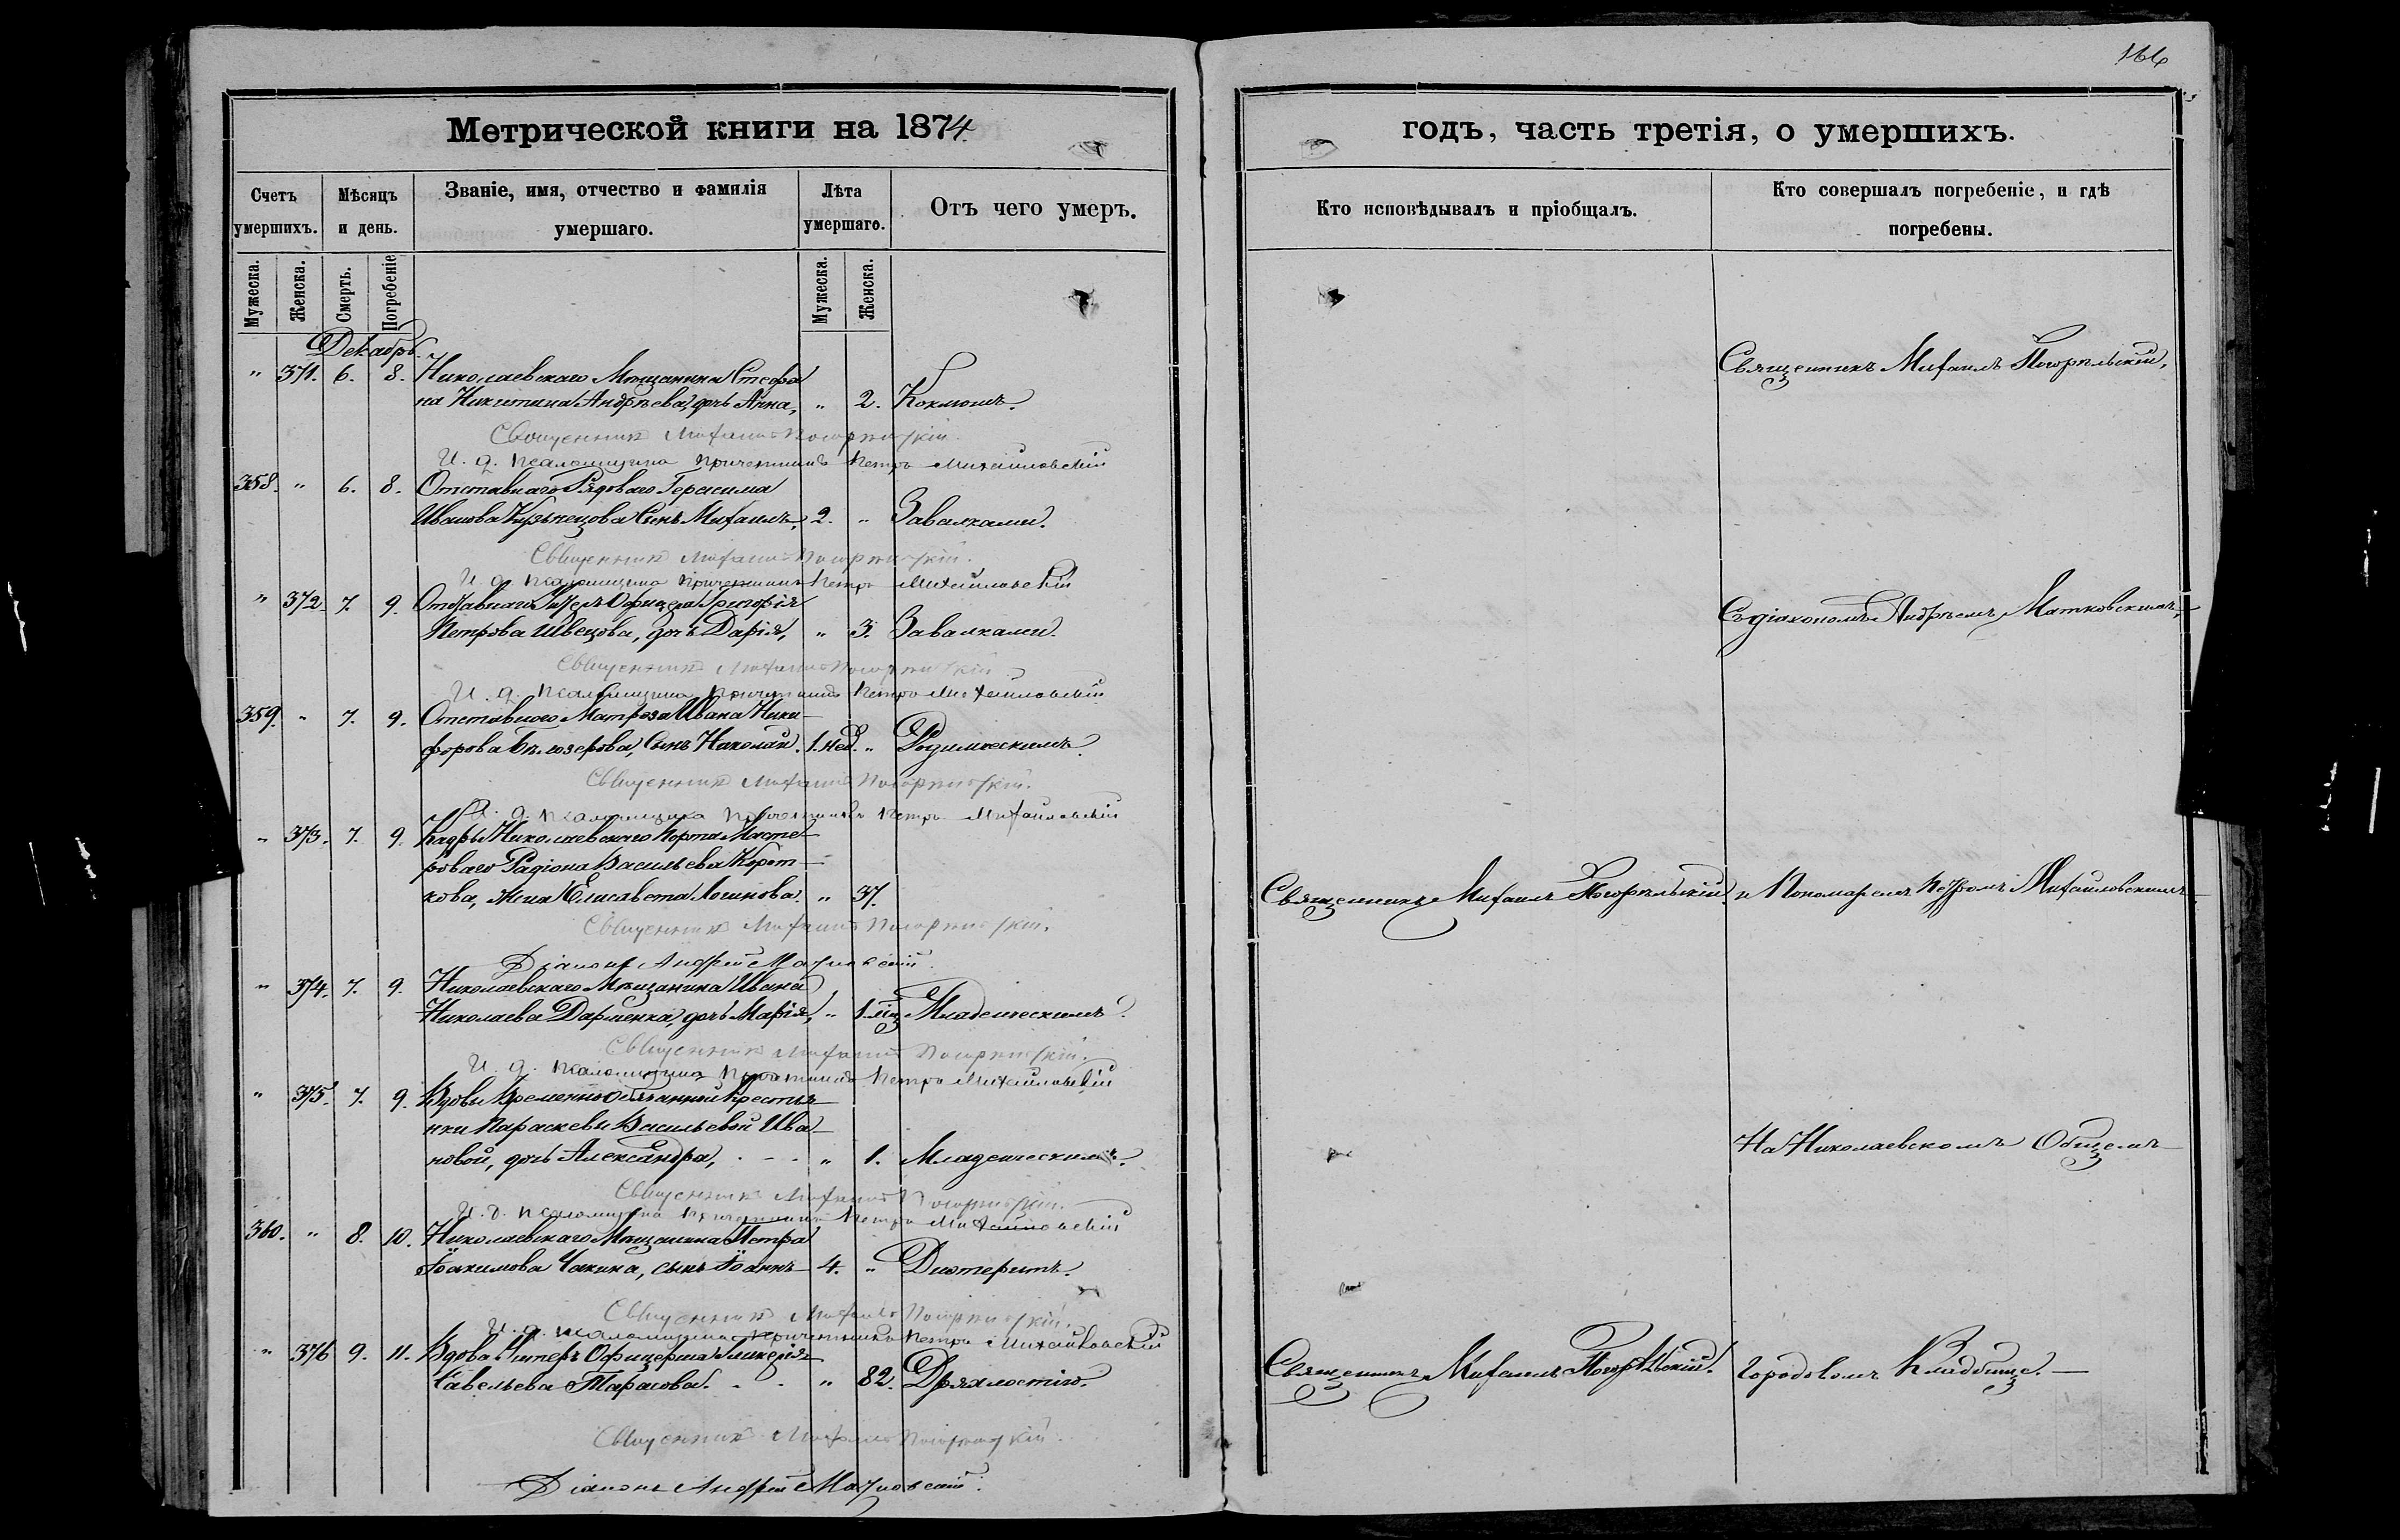 166
Метрической книги на 1874
годъ, часть третія, о умершихъ.
Счетъ умершихъ.
Мѣсяцъ и день.
Званіе, имя, отчество и фамилія умершаго.
Лѣта умершаго.
Отъ чего умеръ.
Кто исповѣдывалъ и пріобщалъ.
Кто совершалъ погребеніе, и гдѣ погребены.
Мужеска.
Женска.
Смерть.
Погребеніе
Мужеска.
Женска.
Декабрь
" 371. 6. 8. Николаевскаго Мѣщанина Стефа
на Никитина Андрѣева, дочь Анна, " 2. Коклюшъ.
Священникъ Михаилъ Погорѣльскій.
Священникъ Михаилъ Погорѣльскій
И. д. псаломщика причетникъ Петръ Михайловскій
358. " 6. 8. Отставнаго Рядоваго Герасима
Иванова Кузьнецова Сынъ Михаилъ, 2. " Завалками.
Священникъ Михаилъ Погорѣльскій.
И. д. псаломщика причетникъ Петръ Михайловскій
" 372. 7. 9. Отставнаго Унтеръ Офицера Григорія
Петрова Швецова, дочь Дарія, " 3. Завалками.
Съ діакономъ Андрѣемъ Матковскимъ,
Священникъ Михаилъ Погорѣльскій
И. д. псаломщика причетникъ Петръ Михайловскій
359. " 7. 9. Отставного Матроза Ивана Ники-
форова Бѣлозерова, Сынъ Николай. 1. нед. " Родимческимъ.
Священникъ Михаилъ Погорѣльскій.
И. д. псаломщика причетникъ Петръ Михайловскій
" 373. 7. 9. Кадры Николаевскаго Порта Масте-
роваго Радіона Васильева Корот-
кова, жена Елисавета Логинова. " 37.
Священникъ Михаилъ Погорѣльскій
и Пономаремъ Петромъ Михайловскимъ
Священникъ Михаилъ Погорѣльскій.
Діаконъ Андрей Матковскій.
" 374. 7. 9. Николаевскаго Мѣщанина Ивана
Николаева Дарменка, дочь Марія, " 1. мц. Младенческимъ.
Священникъ Михаилъ Погорѣльскій.
И. д. псаломщика причетникъ Петръ Михайловскій
" 375. 7. 9. Вдовы Временно Обязанной Крестья-
нки Параскевы Васильевой Ива-
новой, дочь Александра, " 1. Младенческимъ.
На Николаевскомъ Общемъ
Священникъ Михаилъ Погорѣльскій.
И. д. псаломщика причетникъ Петръ Михайловскій
360. " 8. 10. Николаевскаго Мѣщанина Петра
Іоакимова Чакина, сынъ Іоаннъ 4. " Диѳтеритъ.
Священникъ Михаилъ Погорѣльскій.
И. д. псаломщика причетникъ Петръ Михайловскій
" 376 9. 11. Вдова Унтеръ Офицерша Гликерія
Савельева Тарасова. " 82. Дряхлостію.
Священникъ Михаилъ Погорѣльскій.
Городовомъ Кладбищѣ.
Священникъ Михаилъ Погорѣльскій.
Діаконъ Андрей Матковскій.